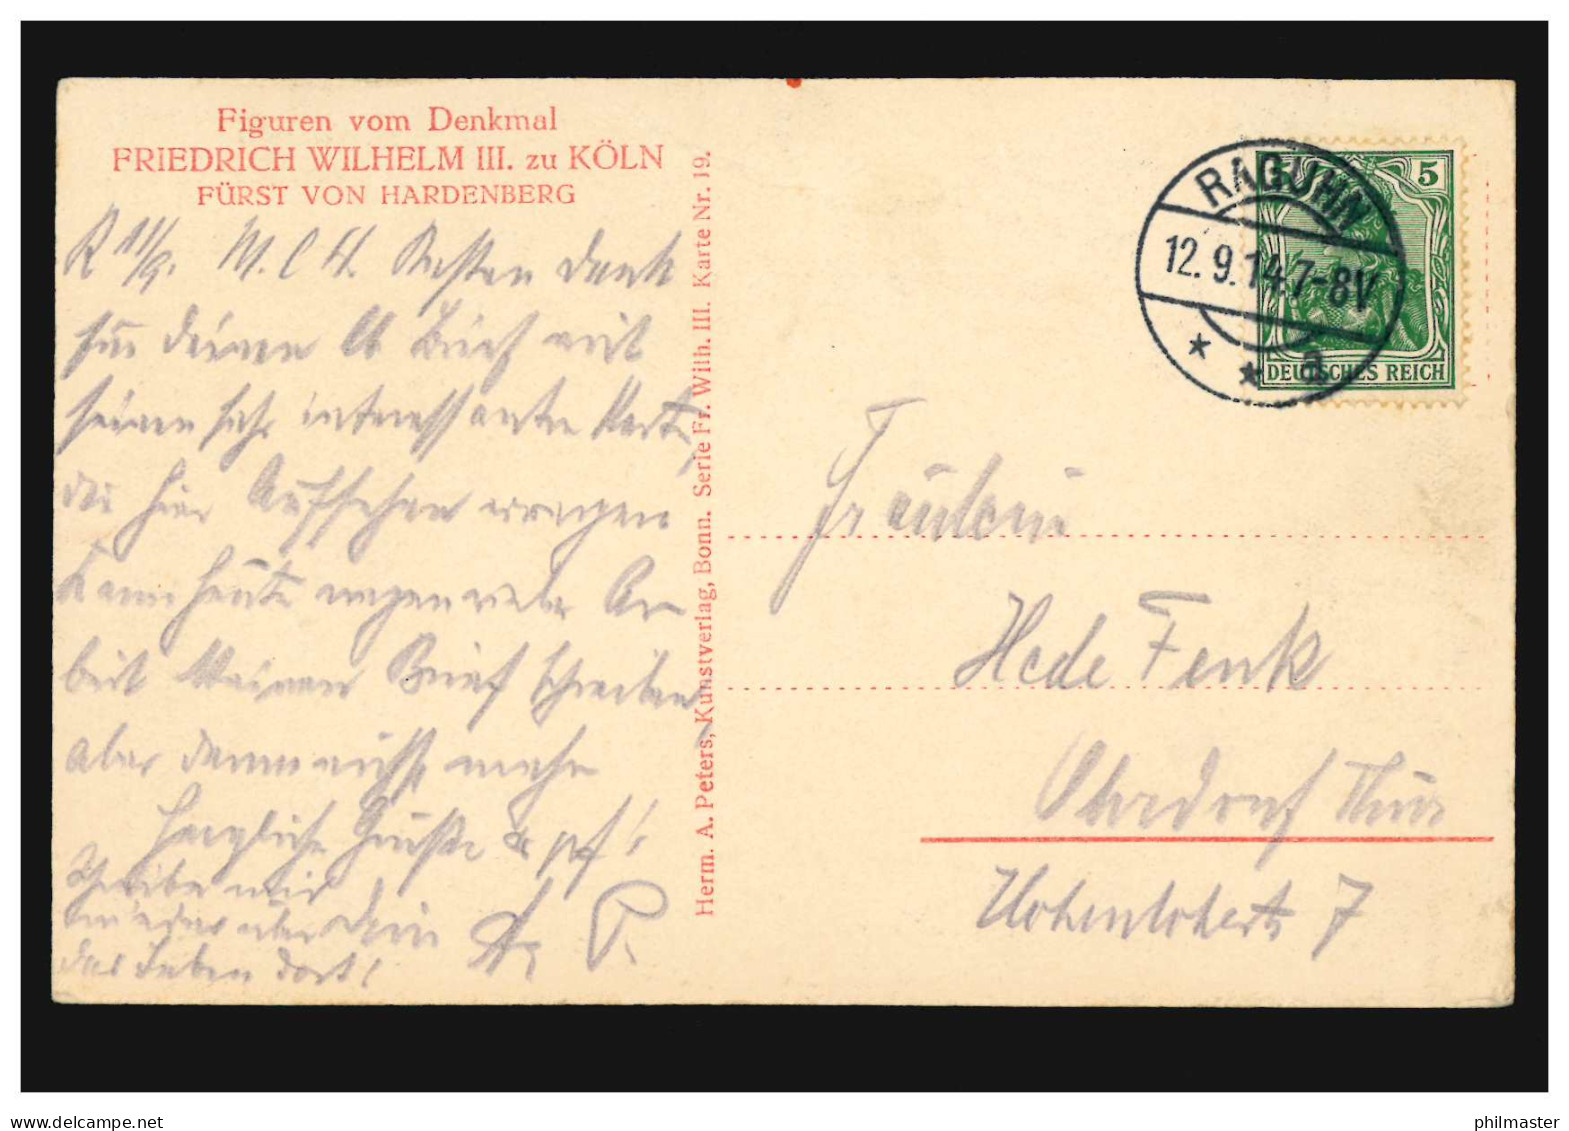 Figuren vom Denkmal
FRIEDRICH WILHELM III. zu KÖLN
FÜRST VON HARDENBERG
R 11/9. M. L. H. Besten Dank
für deinen Brief mit
seinen sehr interessanten Karten,
die hier Aufsehen erregen
Kann heute wegen vieler Ar-
beit keinen Brief schreiben
aber dann nicht mehr
Herzliche Grüße
Schreibe mir
wieder über dein
das Leben dort!
P.
Herm. A. Peters, Kunstverlag, Bonn. Serie Fr. Wilh. III. Karte Nr. 19.
RAGUHN
12. 9. 14. 7-8V
* * a
5
DEUTSCHES REICH
Fräulein
Hede Fenk
Ohrdruf Thür
Hohenlohestr 7
delcampe.net
philmaster